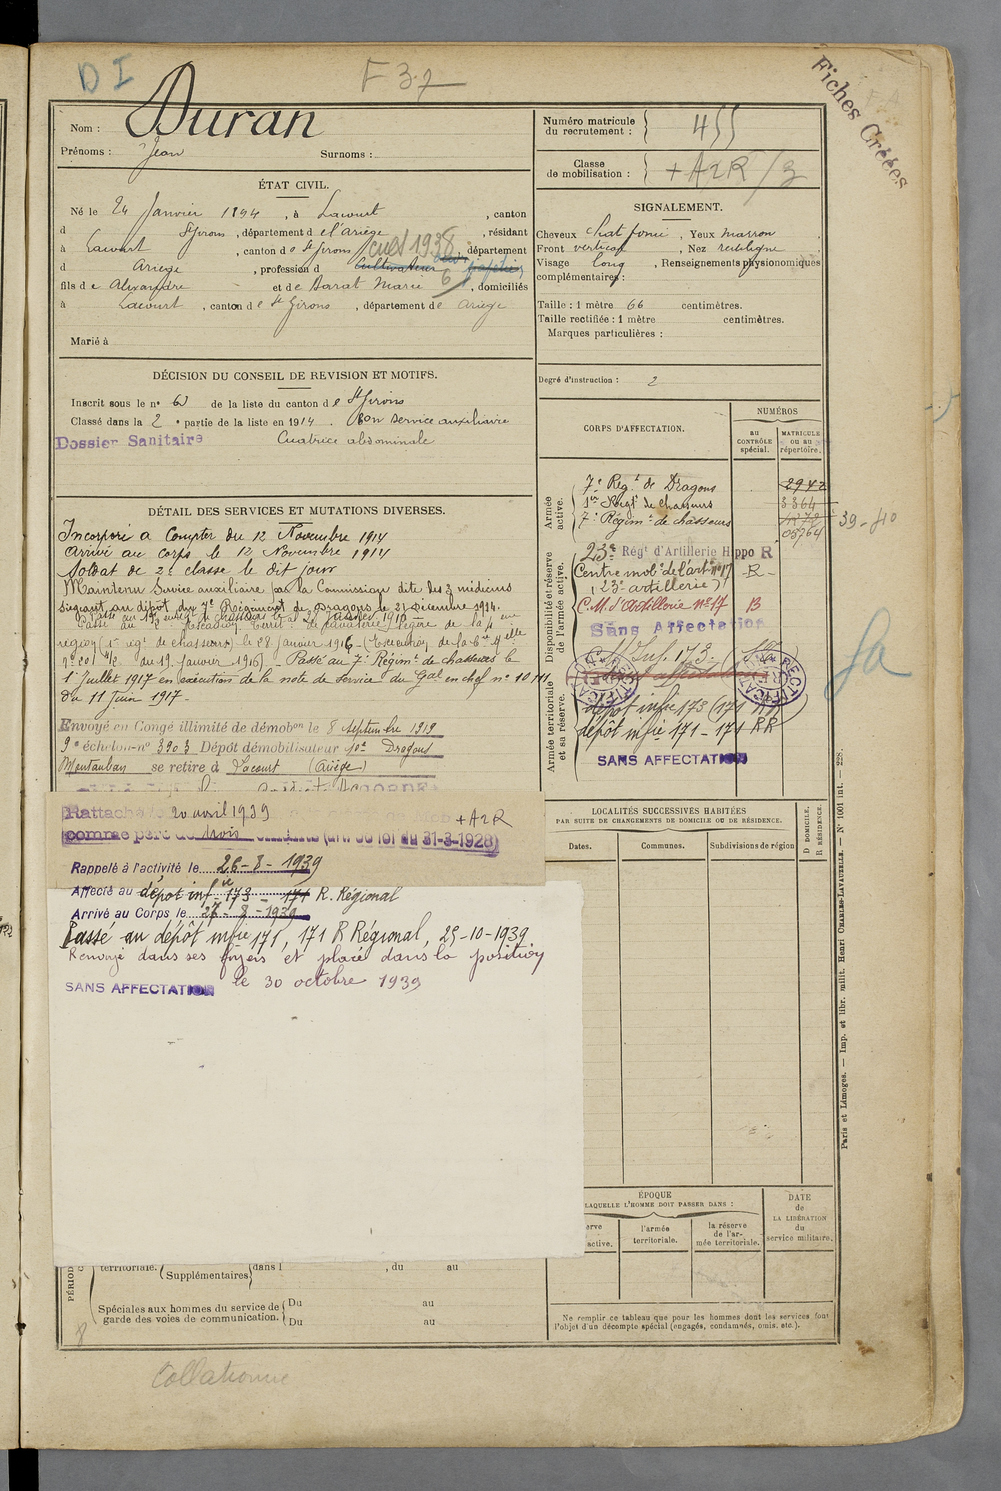 D I
F 32
Fiches Créées
Nom : Duran
Prénoms : Jean Surnoms :
Numéro matricule du recrutement : 455
Classe de mobilisation : + A2R /3
ÉTAT CIVIL.
Né le 24 Janvier 1894, à Lacourt, canton
d St Girons, département d e l'Ariège, résidant
à Lacourt, canton d e St Girons, département
cult 1938
d Ariège, profession d Cultivateur papetier
6
fils d e Alexandre et d e Barat Marie, domiciliés
à Lacourt, canton d e St Girons, département d e Ariège
Marié à
SIGNALEMENT.
Cheveux chat foncé, Yeux marron
Front vertical, Nez rectiligne
Visage long, Renseignements physionomiques
complémentaires :
Taille : 1 mètre 66 centimètres.
Taille rectifiée : 1 mètre centimètres.
Marques particulières :
Degré d'instruction : 2
DÉCISION DU CONSEIL DE REVISION ET MOTIFS.
Inscrit sous le n° 60 de la liste du canton d e St Girons
Classé dans la 2e partie de la liste en 1914. Bon service auxiliaire
Dossier Sanitaire Cicatrice abdominale
CORPS D'AFFECTATION.
NUMÉROS
au CONTRÔLE spécial.
MATRICULE ou au répertoire.
Armée active.
7e Régt de Dragons 2942
1er Régt de chasseurs 3364
7e Régim. de chasseurs
03764
39-40
Disponibilité et réserve de l'armée active.
23e Régt d'Artillerie Hippo R
Centre mobe de l'artie n° 17 - R -
(23e artillerie)
C.M. d'Artillerie n° 17 B
Sans Affectation
Armée territoriale et sa réserve.
D. Inf. 173
RECTIFICATION
RECTIFICATION
dépôt infie 173 (171 RR)
dépôt infie 171 - 171 RR
SANS AFFECTATION
fa
DÉTAIL DES SERVICES ET MUTATIONS DIVERSES.
Incorporé à Compter du 12 Novembre 1914
Arrivé au corps le 12 Novembre 1914
Soldat de 2e classe le dit jour
Maintenu Service auxiliaire par la Commission dite des 3 médecins
siégeant au dépôt du 7e Régiment de Dragons le 21 décembre 1914.
région (1er régt de chasseurs) le 28 janvier 1916 (Exécution de la Cre Mlle
n° 201 du 19 Janvier 1916). Passé au 7e Régim. de chasseurs le
1er Juillet 1917 en exécution de la note de service du Gal en chef n° 10111
du 11 Juin 1917.
Envoyé en Congé illimité de démobon le 8 Septembre 1919
9e échelon n° 3903 Dépôt démobilisateur 10e Dragons
Montauban se retire à Lacourt (Ariège)
Rattaché 20 avril 1939 + A2R
comme père de trois enfants du 31-3-1928)
Rappelé à l'activité le 26-8-1939
Affecté au dépôt infie 173 - 171 R. Régional
Arrivé au Corps le 27-8-1939
Passé au dépôt infie 171, 171 R Régional, 25-10-1939
Renvoyé dans ses foyers et placé dans la position
SANS AFFECTATION le 30 octobre 1939
LOCALITÉS SUCCESSIVES HABITÉES
PAR SUITE DE CHANGEMENTS DE DOMICILE OU DE RÉSIDENCE.
Dates. Communes. Subdivisions de région
D DOMICILE. R RÉSIDENCE.
ÉPOQUE
LAQUELLE L'HOMME DOIT PASSER DANS :
l'armée territoriale.
la réserve de l'armée territoriale.
DATE de LA LIBÉRATION du service militaire.
territoriale. Supplémentaires dans l , du au
Spéciales aux hommes du service de garde des voies de communication. Du au
Du au
Ne remplir ce tableau que pour les hommes dont les services font
l'objet d'un décompte spécial (engagés, condamnés, omis, etc.).
Paris et Limoges. — Imp. et libr. milit. Henri CHARLES-LAVAUZELLE — N° 1001 int. — 228.
Collationné